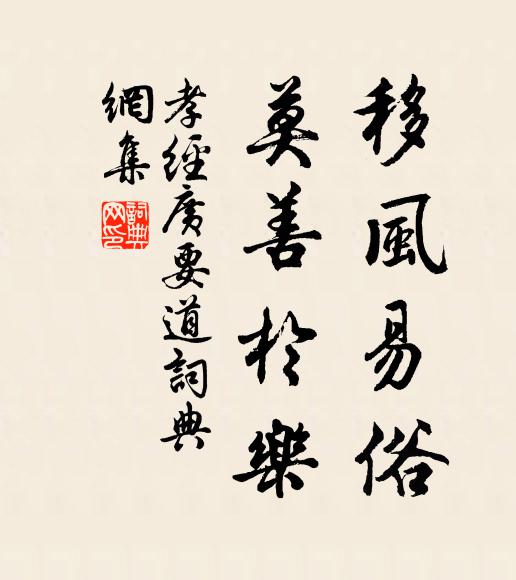 移風易俗
莫善於樂
孝經廣要道詞典
網集
詞典
网印